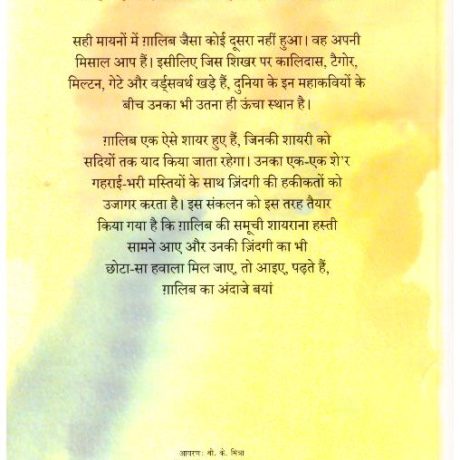 सही मायनों में ग़ालिब जैसा कोई दूसरा नहीं हुआ। वह अपनी
मिसाल आप हैं। इसीलिए जिस शिखर पर कालिदास, टैगोर,
मिल्टन, गेटे और वर्ड्सवर्थ खड़े हैं, दुनिया के इन महाकवियों के
बीच उनका भी उतना ही ऊंचा स्थान है।
ग़ालिब एक ऐसे शायर हुए हैं, जिनकी शायरी को
सदियों तक याद किया जाता रहेगा। उनका एक-एक शे'र
गहराई-भरी मस्तियों के साथ ज़िंदगी की हकीकतों को
उजागर करता है। इस संकलन को इस तरह तैयार
किया गया है कि ग़ालिब की समूची शायराना हस्ती
सामने आए और उनकी ज़िंदगी का भी
छोटा-सा हवाला मिल जाए, तो आइए, पढ़ते हैं,
ग़ालिब का अंदाजे बयां
आवरण: बी. के. मित्रा